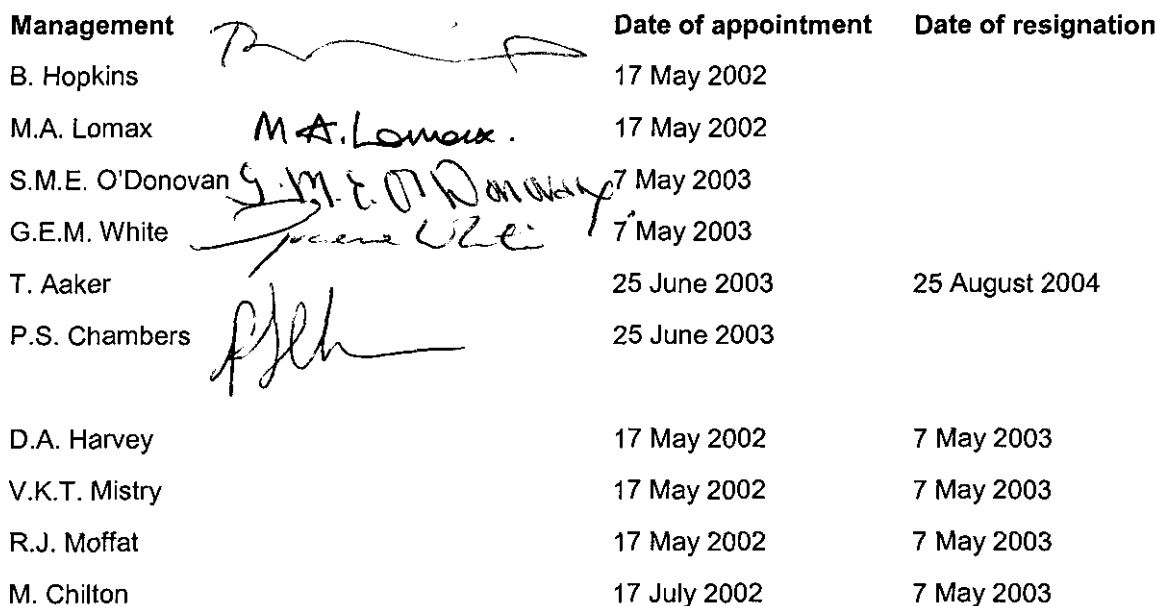 Management Date of appointment Date of resignation
B. Hopkins 17 May 2002
M.A. Lomax M.A. Lomax. 17 May 2002
S.M.E. O'Donovan S.M.E. O'Donovan 7 May 2003
G.E.M. White White 7 May 2003
T. Aaker 25 June 2003 25 August 2004
P.S. Chambers 25 June 2003
D.A. Harvey 17 May 2002 7 May 2003
V.K.T. Mistry 17 May 2002 7 May 2003
R.J. Moffat 17 May 2002 7 May 2003
M. Chilton 17 July 2002 7 May 2003